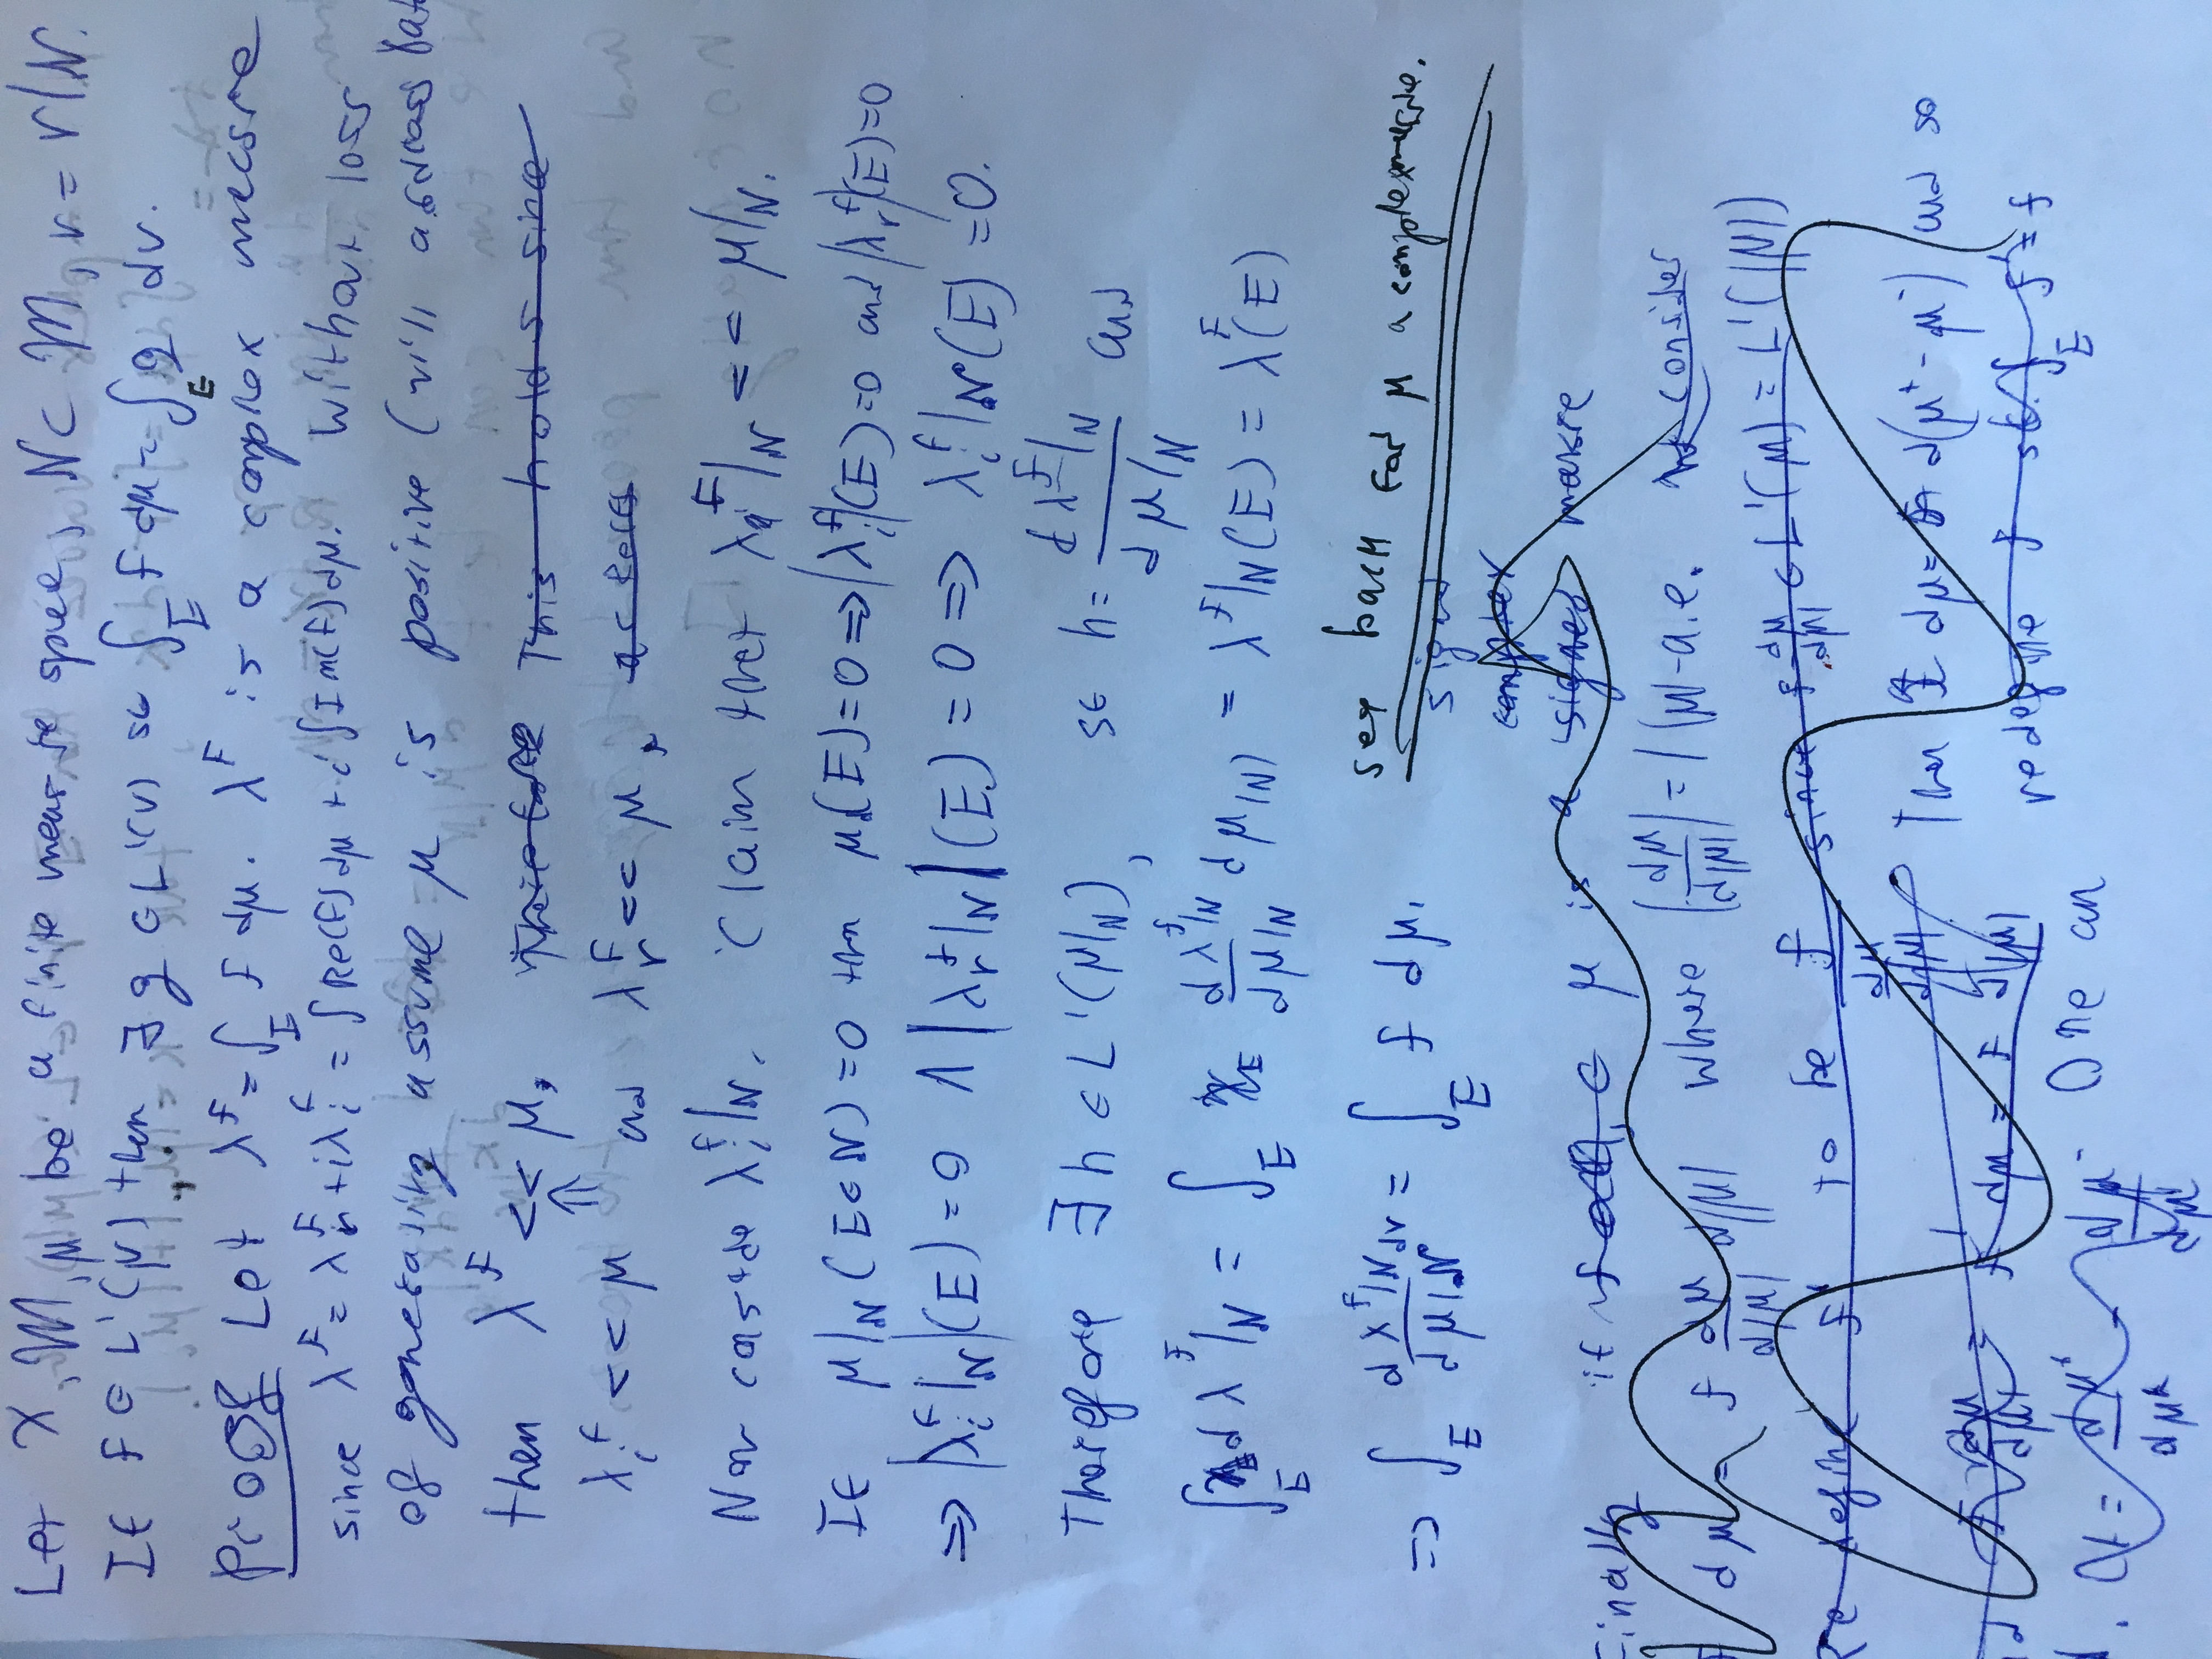 Let X, M, μ be a finite measure space, N ⊂ M, ν = ν|N.
If f ∈ L'(μ) then ∃ g ∈ L'(ν) st ∫_E f dμ = ∫_E g dν.
Proof Let λ^f = ∫_E f dμ. λ^f is a complex measure
since λ^f = λ_r^f + iλ_i^f = ∫Re(f)dμ + i∫Im(f)dμ. Without loss
of generality assume μ is positive (will address that
then λ^f << μ, Therefore This holds since
⇑
λ_i^f << μ and λ_r^f << μ,
Now conside λ_i^f|N. Claim that λ^f|N << μ|N.
If μ|N (E∈N)=0 then μ(E)=0 ⇒ |λ_i^f|(E)=0 and |λ_r^f|(E)=0
⇒ |λ_i^f|N|(E)=0 ∧ |λ_r^f|N|(E)=0 ⇒ λ_i^f|N(E)=0.
Therefore ∃ h ∈ L'(μ|N), st h = dλ^f|N / dμ|N and
∫_E dλ^f|N = ∫_E dλ^f|N / dμ|N dμ|N) = λ^f|N(E) = λ^f(E)
⇒ ∫_E dλ^f|N / dμ|N dν = ∫_E f dμ.
see back for μ a complex measure.
signed
complex
Finally if f μ is a signed measure
dμ = f dμ/d|μ| d|μ| where |dμ/d|μ|| = 1 |μ|-a.e. consider
Redefine f' to be f / dμ/d|μ| since f dμ/d|μ| ∈ L'(μ) = L'(|μ|)
Then dμ = d(μ⁺ - μ⁻) and so
f' dμ = f d|μ|
redefine f st. ∫_E f' = f
One can